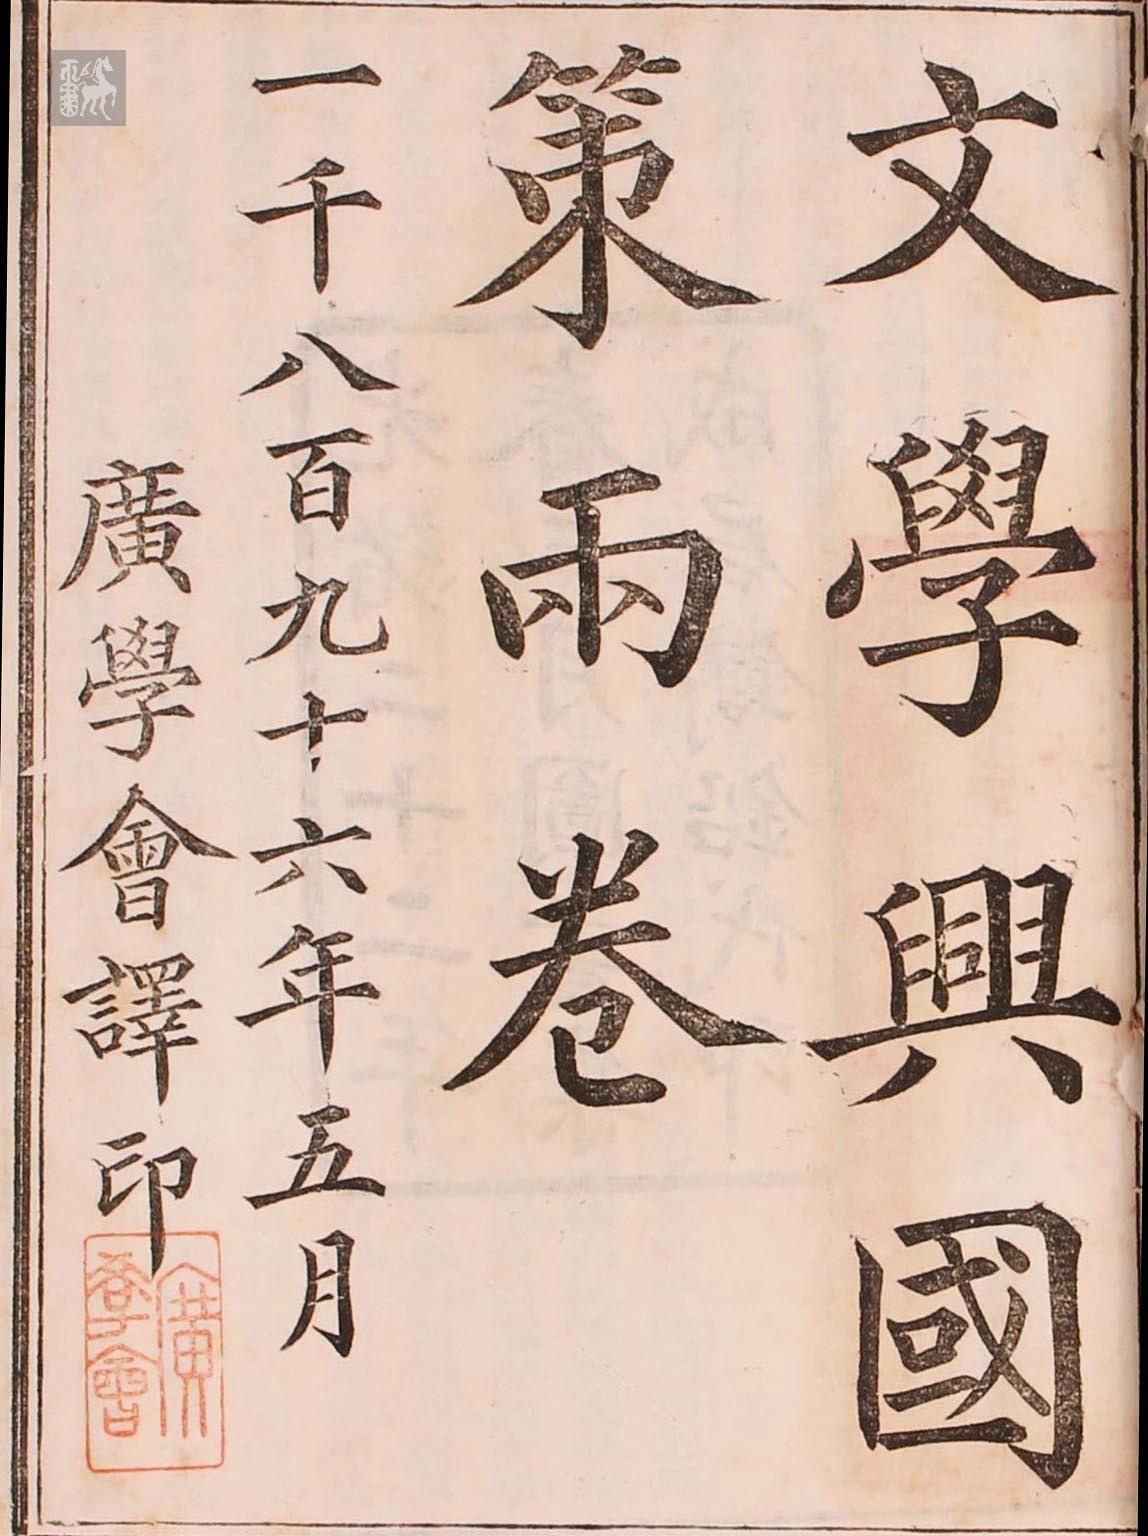 文學興國
策兩卷
一千八百九十六年五月
廣學會譯印
廣學會